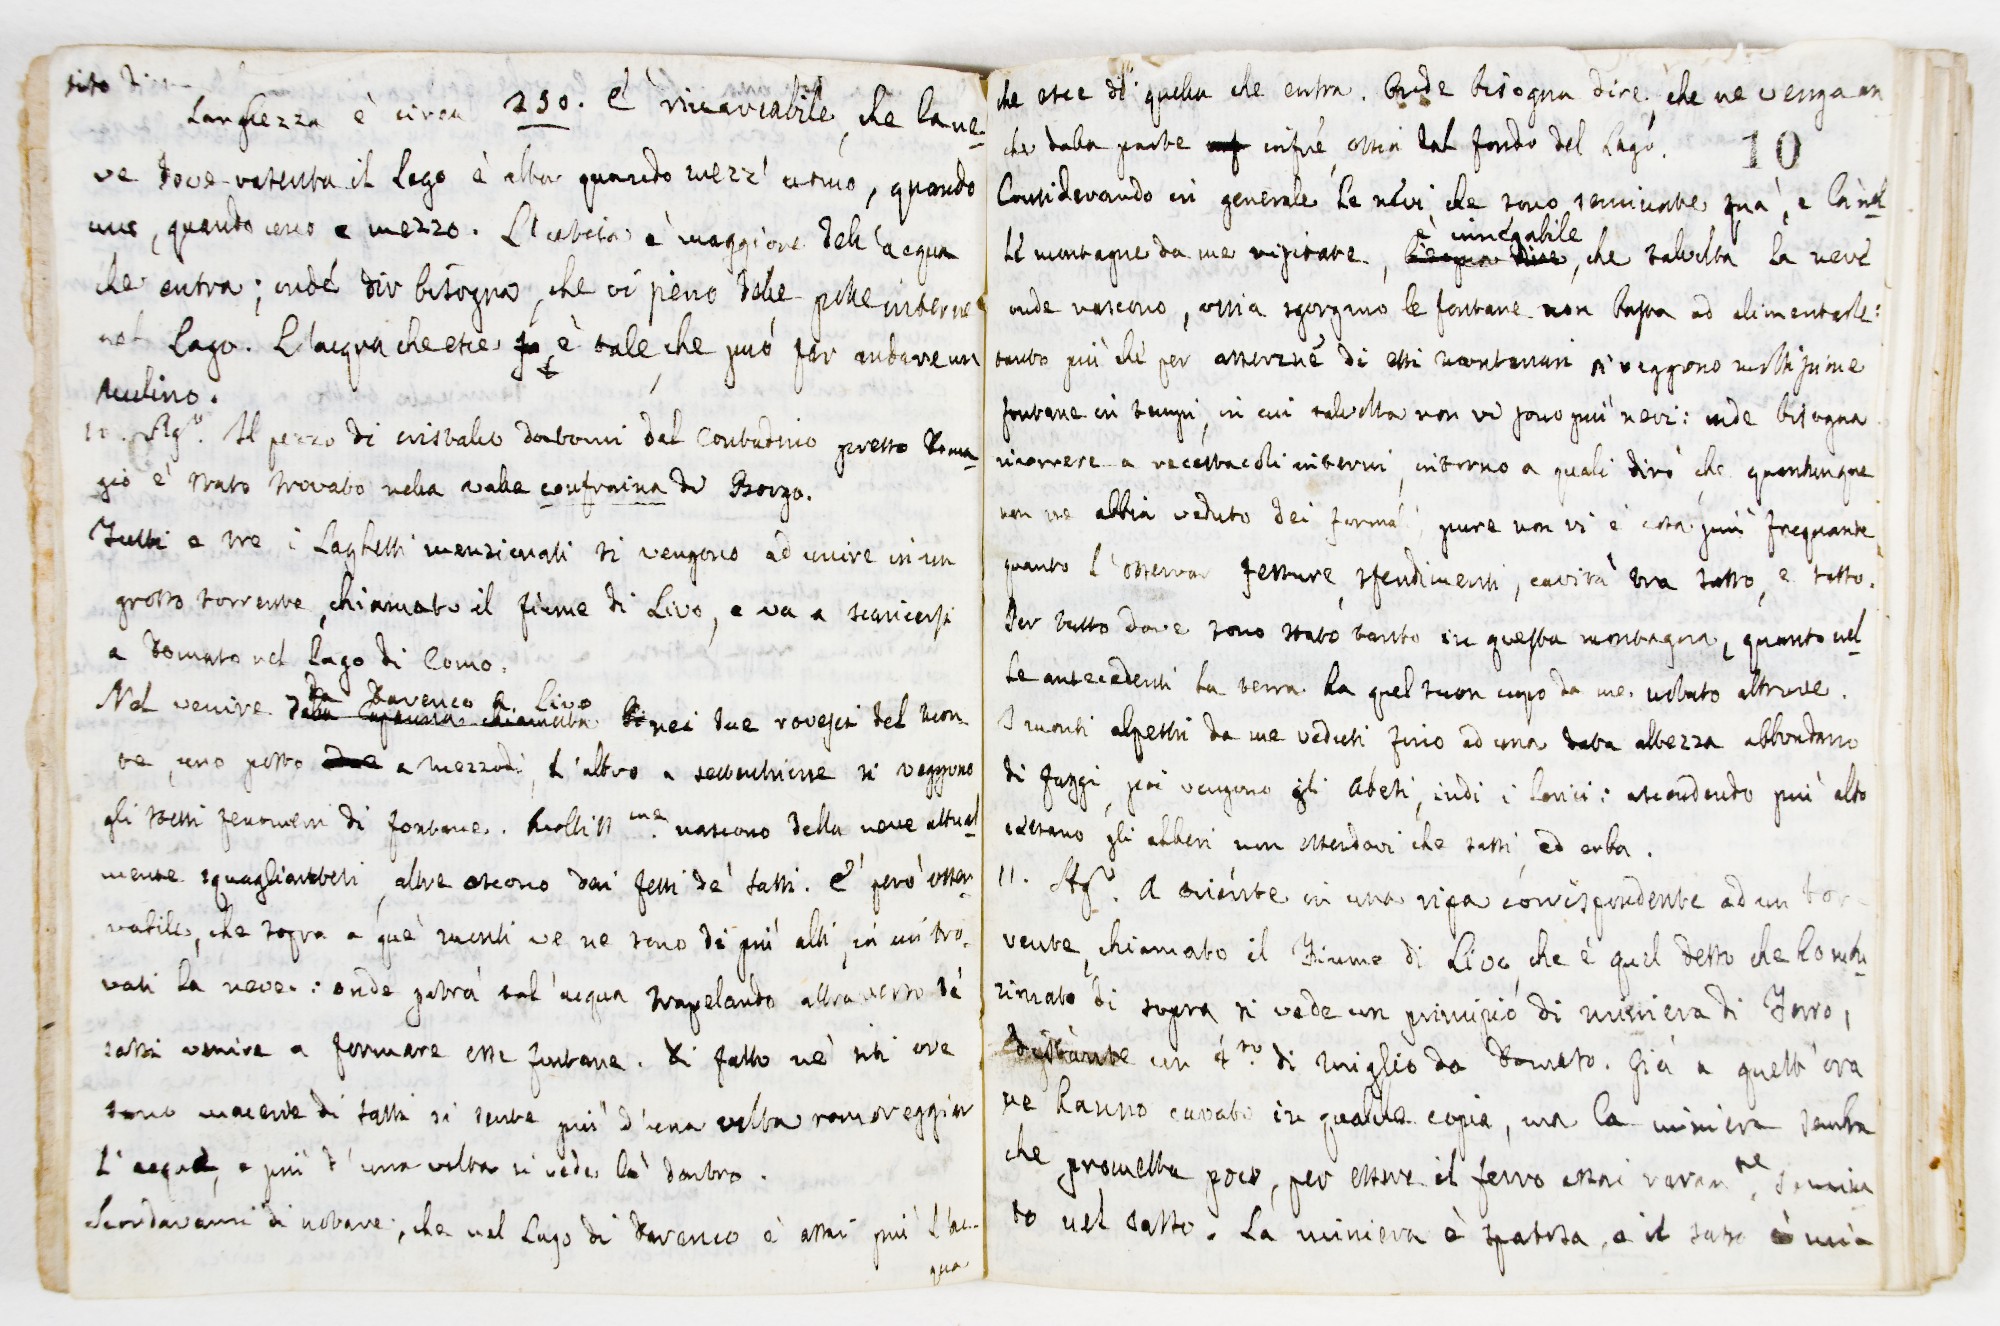 sito di
Larghezza è circa 250. E' rimarcabile, che la ne-
ve dove rasenta il Lago è alta quando mezz' uomo, quando
uno, quando uno e mezzo. L'uscita è maggiore dell'acqua
che entra; onde dir bisogna, che vi sieno delle polle interne
nel Lago. L'acqua che esce è tale, che può far andare un
mulino.
10. Ago. Il pezzo di cristallo datomi dal Contadino presso Doma-
gio è stato trovato nella valle confraina di Borgo.
Tutti e tre i Laghetti menzionati si vengono ad unire in un
grosso torrente, chiamato il fiume di Livo, e va a scaricarsi
a Domaso nel Lago di Como.
da Darenco a Livo
Nel venire dalla capanna chiamata nei due rovesci del mon-
te, uno posto a mezzodì, l'altro a settentrione si veggono
gli stessi fenomeni di fontane. Moltissme. nascono della neve attual-
mente squagliantesi, altre escono dai fessi de' sassi. E' però osser-
vabile, che sopra a que' monti ve ne sono di più alti, in cui tro-
vasi la neve: onde potrà tal'acqua trapelando attraverso de'
sassi venire a formare esse fontane. Di fatto ne' siti ove
sono macerie di sassi si sente più d'una volta romoreggiar
l'acqua, e più d'una volta si vede là dentro.
Scordavami di notare, che nel Lago di Darenco è assai più l'ac-
qua
che esce di quella che entra. Onde bisogna dire, che ne venga an
che dalla parte infre, ossia dal fondo del Lago.
10
Considerando in generale le nevi che sono seminate quà, e là nel
è innegabile
le montagne da me visitate, bisogna dire, che talvolta la neve
onde nascono, ossia sgorgano le fontane non basta ad alimentarle:
tanto più che per asserzne di essi montanari si veggono moltissime
fontane in tempi, in cui talvolta non vi sono più nevi: onde bisogna
ricorrere a recettacoli interni, intorno a quali dirò, che quantunque
non ne abbia veduto dei formali, pure non vi è cosa più frequente,
quanto l'osservar fessure, sfendimenti, cavità tra sasso, e sasso.
Per tutto dove sono stato tanto in questa montagna, quanto nel
le antecedenti la terra ha quel suon cupo da me notato altrove.
I monti alpestri da me veduti fino ad una data altezza abbondano
di faggi, poi vengono gli Abeti, indi i larici: ascendendo più alto
cessano gli alberi non essendovi che sassi, ed erba.
11. Ago. A oriente in una ripa corrispondente ad un tor-
rente, chiamato il Fiume di Livo, che è quel desso che ho men
zionato di sopra, si vede un principio di miniera di Ferro,
distante un 4to. di miglio da Domaso. Già a quest'ora
ne hanno cavato in qualche copia, ma la miniera sembra
che prometta poco, per essere il ferro assai raramne. semina
to nel sasso. La miniera è spatosa, e il sasso è mi-